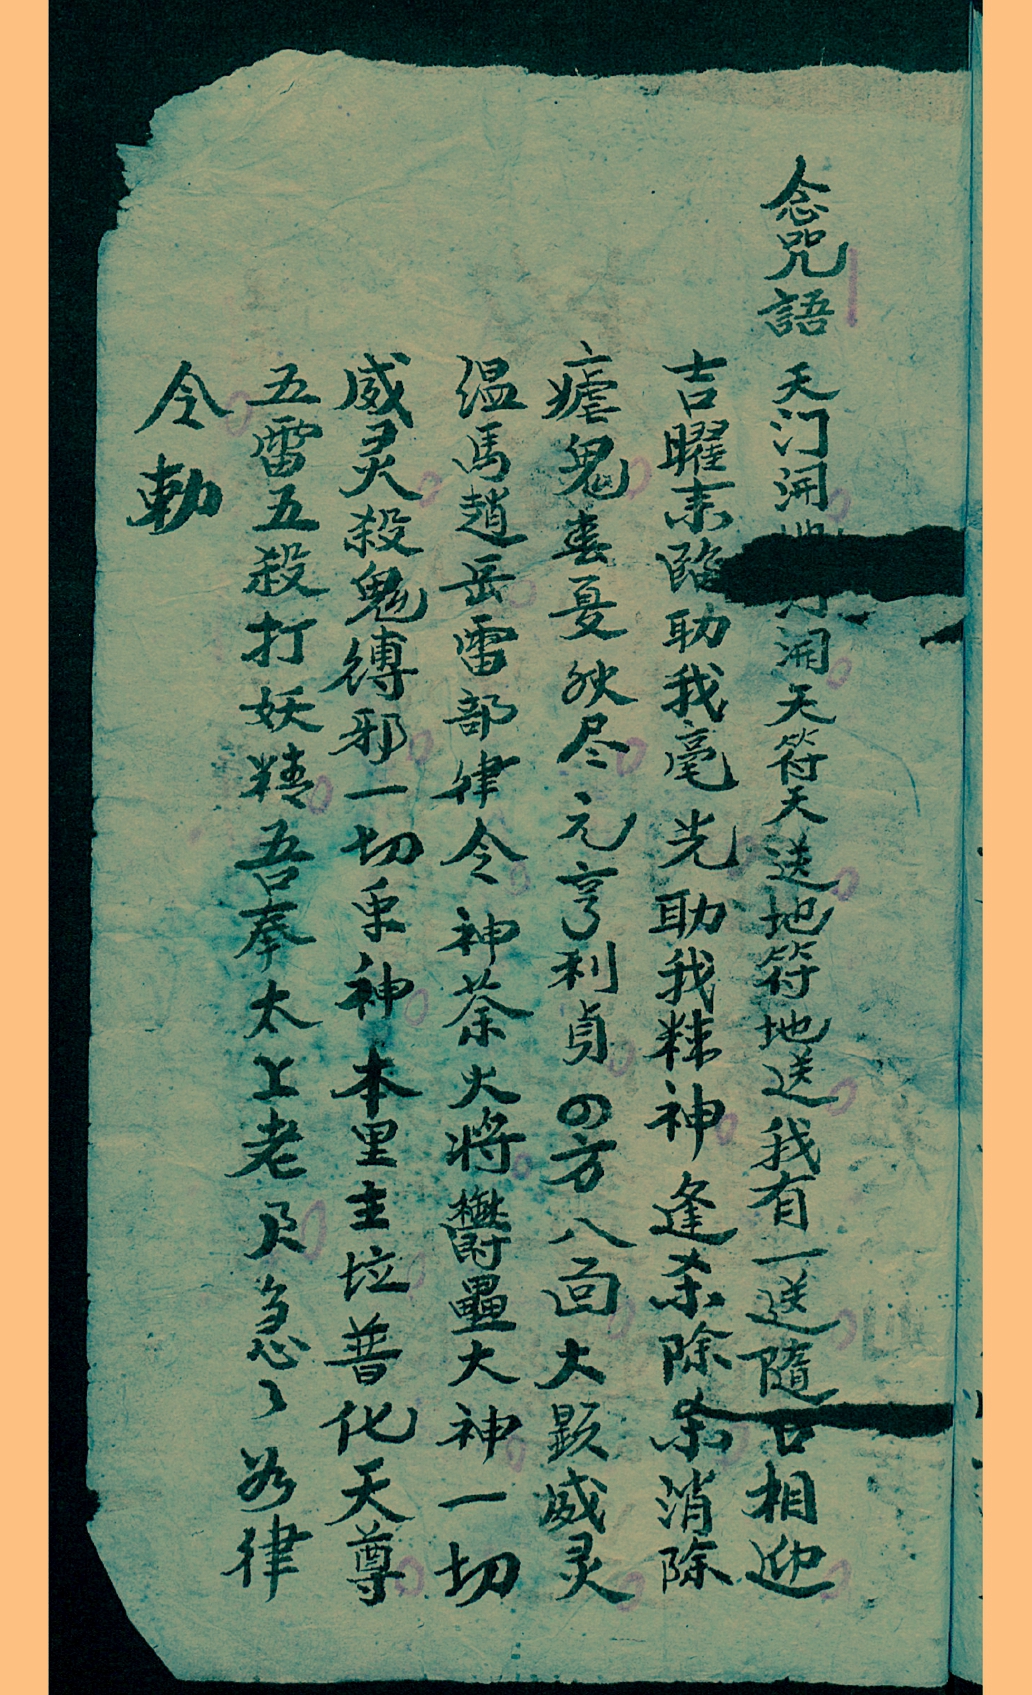 念咒語 天门開 开天符天送地符地送我有一送隨 相迎
吉曜来臨助我毫光助我精神逢杀除杀消除
瘧鬼春夏秋尽元亨利貞四方八面大顕威灵
温馬趙岳雷部律令神荼大将欝壘大神一切
威灵殺鬼縛邪一切 神本里主垃普化天尊
五雷五殺打妖精吾奉太上老君急〻如律
令勅